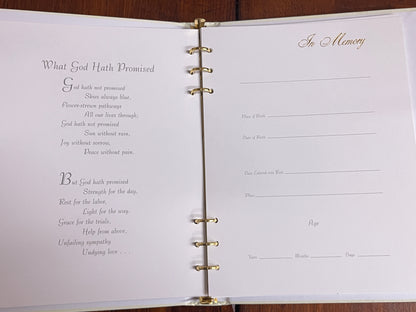 What God Hath Promised
God hath not promised
Skies always blue,
Flower-strewn pathways
All our lives through;
God hath not promised
Sun without rain,
Joy without sorrow,
Peace without pain.
But God hath promised
Strength for the day,
Rest for the labor,
Light for the way.
Grace for the trials,
Help from above,
Unfailing sympathy
Undying love . . .
In Memory
Place of Birth
Date of Birth
Date Entered into Rest
Place
Age
Years
Months
Days